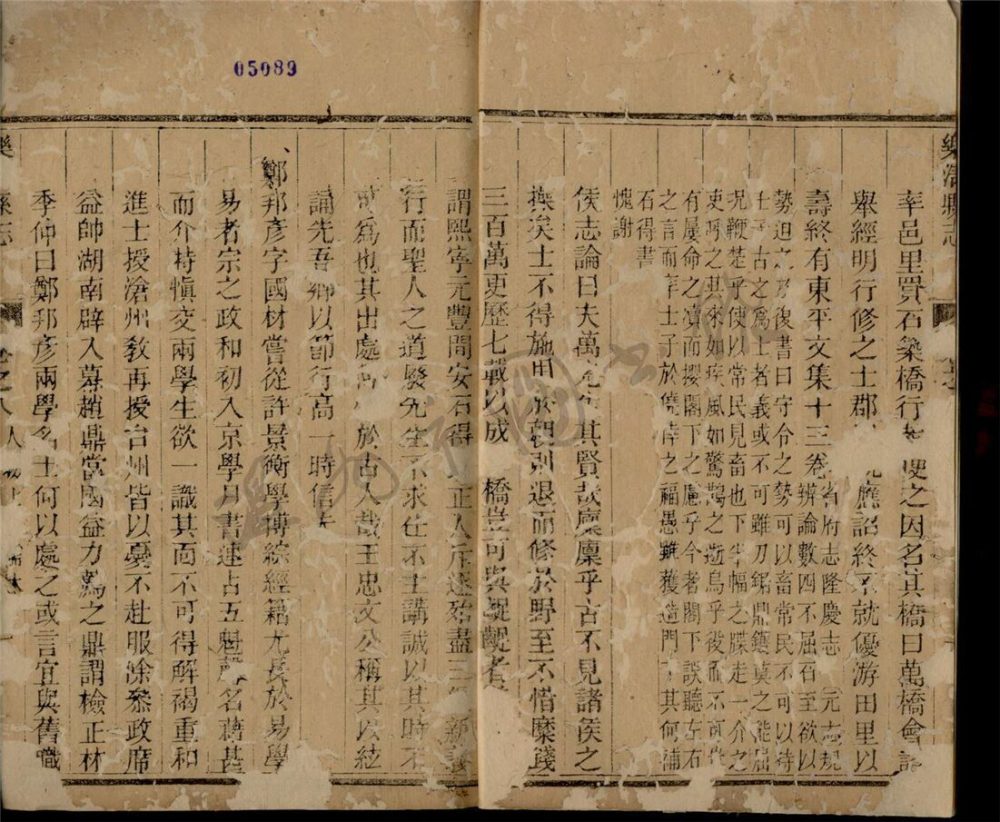 樂清縣志
率邑里買石築橋行者便之因名其橋曰萬橋會詔
舉經明行修之士郡應詔終不就優游田里以
壽終有東平文集十三卷
省府志隆慶志元志規
辨論數四不屈石至欲以
勢迫之乃復書曰守令之勢可以畜常民不可以待
士古之為士者義或不可雖刀鋸鼎鑊莫之能屈
況鞭楚乎使以常民見畜也下半幅之牒走一介之
吏呼之其來如疾風如驚鵲之逝烏乎後而不可
有屢命之瀆而攖閣下之慮乎今者閣下誤聽左右
之言而士子於僥倖之福愚雖獲造門下其何補
石得書
愧謝
侯志論曰夫萬先生其賢哉廩廩乎古不見諸侯之
操矣士不得施用於朝則退而修於野至不惜糜錢
三百萬更歷七載以成橋豈可與齪齪者
謂熙寧元豐間安石得正人斥逐殆盡三
行而聖人之道廢先生不求仕不主講誠以其時不
可為也其出處何於古人哉王忠文公稱其以絃
誦先吾鄉以節行高一時信
鄭邦彥字國材嘗從許景衡學博綜經籍尤長於易學
易者宗之政和初入京學月書連占五魁聲名藉甚
而介特慎交兩學生欲一識其面不可得解褐重和
進士授滄州教再授台州皆以憂不赴服除參政席
益帥湖南辟入幕趙鼎當國益力薦之鼎謂檢正林
季仲曰鄭邦彥兩學名士何以處之或言宜與舊職
樂縣志
卷之八
人
05089